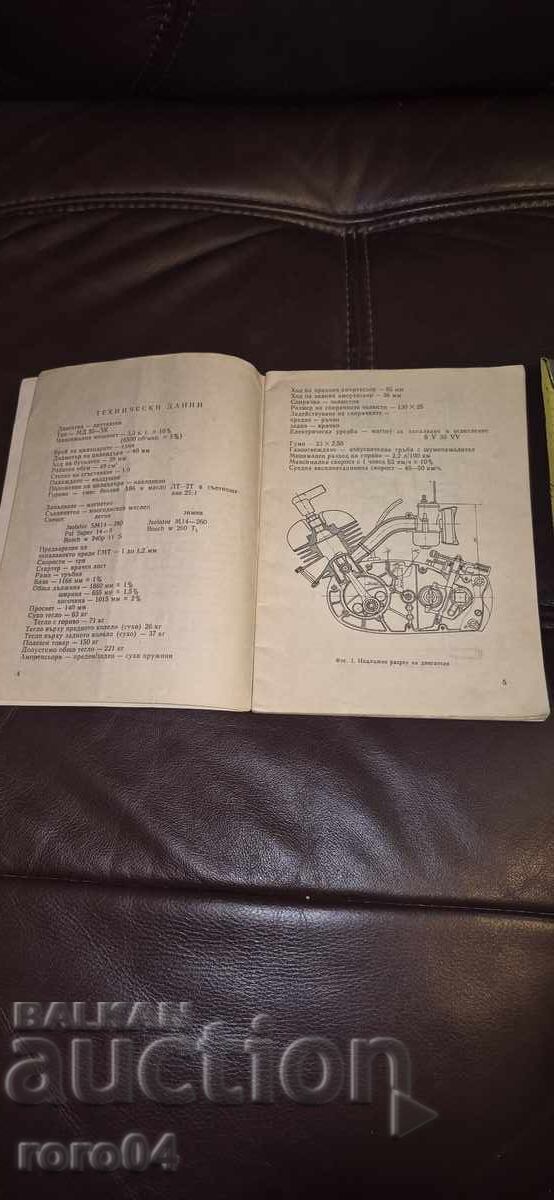 ТЕХНИЧЕСКИ ДАННИ
Двигател — двутактов
Тип —
Максимална мощност — 3,0 к. с. ± 10%
(6500 об/мин. ± 5%)
Брой на цилиндрите — един
Диаметър на цилиндъра — 40 мм
Ход на буталото — 39 мм
Работен обем — 49 см³
Степен на сгъстяване —
Охлаждане — въздушно
Положение на цилиндъра — наклонено
Гориво — смес бензин А86 и масло ЛТ—2Т в съотноше-
ние 25:1
Запалване — магнетно
Съединител — многодисков маслен
Свещи: летни зимни
Isolator SM14—280 Isolator M14—260
Pal Super 14—8 Bosch W 260 T₁
Bosch w 240p 11 S
Предварение на
запалването преди ГМТ — 1 до 1,2 мм
Скорости — три
Стартер — крачен лост
Рама — тръбна
База — 1166 мм ± 1%
Обща дължина — 1860 мм ± 1%
ширина — 655 мм ± 1,5%
височина — 1015 мм ± 2%
Просвет — 140 мм
Сухо тегло — 63 кг
Тегло с гориво — 71 кг
Тегло върху предното колело (сухо) 26 кг
Тегло върху задното колело (сухо) — 37 кг
Полезен товар — 150 кг
Допустимо общо тегло — 221 кг
Амортисьори — преден/заден — сухи пружинни
4
Ход на предния амортисьор — 85 мм
Ход на задния амортисьор — 36 мм
Спирачка — челюстна
Размер на спирачните челюсти — 120 × 25
Задействуване на спирачките —
предно — ръчно
задно — крачно
Електрическа уредба — магнет за запалване и осветление
6 V 30 VV
Гуми — 23 × 2,50
Газоотвеждане — изпускателна тръба с шумозаглушител
Минимален разход на гориво — 2,2 л/100 км
Максимална скорост с 1 човек 62 км/ч ± 10%
Средна експлоатационна скорост — 45—50 км/ч.
Фиг. 1. Надлъжен разрез на двигателя
5
BALKAN
auction
roro04